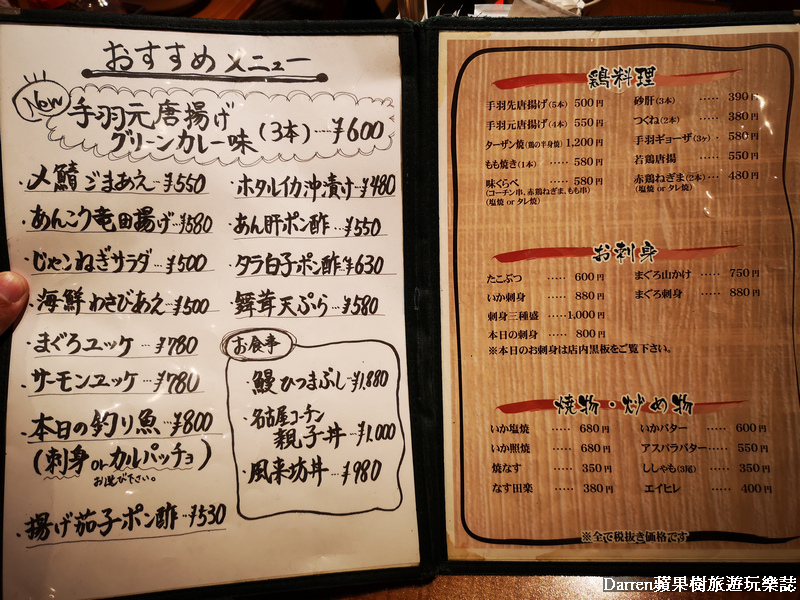 おすすめメニュー
New
手羽元唐揚げ
グリーンカレー味(3本)…¥600
・〆鯖ごまあえ…¥550
・あんこう竜田揚げ…¥580
・じゃこねぎサラダ…¥500
・海鮮わさびあえ…¥500
・まぐろユッケ…¥780
・サーモンユッケ…¥780
・本日の釣り魚…¥800
(刺身orカルパッチョ)
お選び下さい。
・揚げ茄子ポン酢…¥530
・ホタルイカ沖漬け…¥480
・あん肝ポン酢…¥550
・タラ白子ポン酢…¥630
・舞茸天ぷら…¥580
お食事
・鰻ひつまぶし…¥1,880
・名古屋コーチン
親子丼…¥1,000
・風来坊丼…¥980
鶏料理
手羽先唐揚げ(5本) 500円
手羽元唐揚げ(4本) 550円
ターザン焼(鶏の半身焼) 1,200円
もも焼き(1本) ····· 580円
味くらべ ····· 580円
(コーチン串、赤鶏ねぎま、もも串)
(塩焼 or タレ焼)
砂肝(3本) ····· 390円
つくね(2本) ····· 380円
手羽ギョーザ(3ヶ)· 580円
若鶏唐揚 ····· 550円
赤鶏ねぎま(2本)··· 480円
(塩焼 or タレ焼)
お刺身
たこぶつ ····· 600円
いか刺身 ····· 880円
刺身三種盛 ·····1,000円
本日の刺身 ····· 800円
※本日のお刺身は店内黒板をご覧下さい。
まぐろ山かけ ····· 750円
まぐろ刺身 ····· 880円
焼物・炒め物
いか塩焼 ····· 680円
いか照焼 ····· 680円
焼なす ····· 350円
なす田楽 ····· 380円
いかバター ····· 600円
アスパラバター····· 550円
ししゃも(3尾) ····· 350円
エイヒレ ····· 400円
※全て税抜き価格です
Darren蘋果樹旅遊玩樂誌